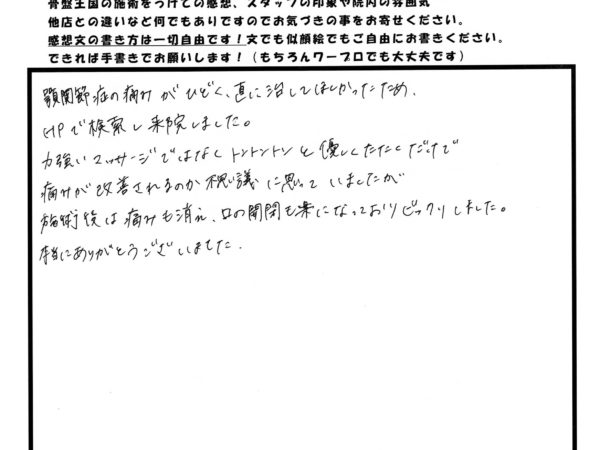 骨盤王国の施術をうけての感想、スタッフの印象や院内の雰囲気
他店との違いなど何でもありですのでお気づきの事をお寄せください。
感想文の書き方は一切自由です！文でも似顔絵でもご自由にお書きください。
できれば手書きでお願いします！（もちろんワープロでも大丈夫です）
顎関節症の痛みがひどく、直に治してほしかったため、
HPで検索し来院しました。
力強いマッサージではなくトントントンと優しくたたくだけで
痛みが改善されるのか不思議に思っていましたが
施術後は痛みも消え、口の開閉も楽になっておりビックリしました。
本当にありがとうございました。